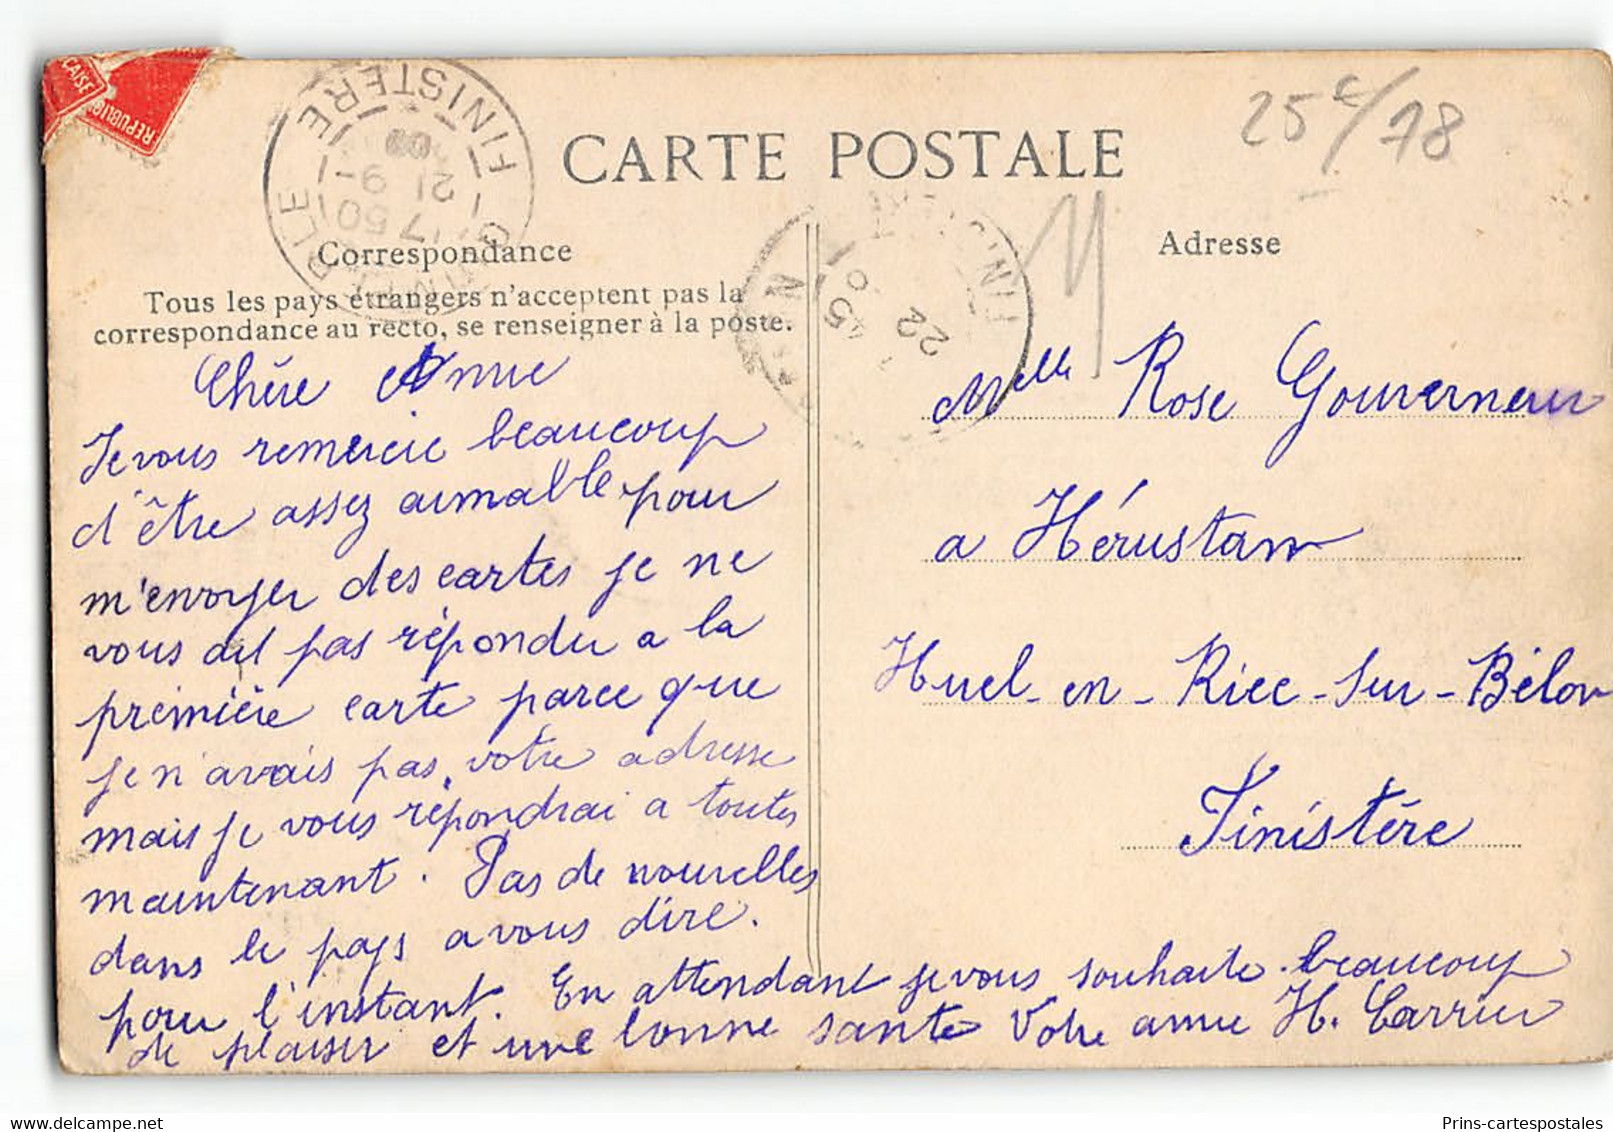 CAISE
REPUBLIQ
FINISTERE
17 50
21 9
CARTE POSTALE
25 € / 78
Correspondance
Tous les pays étrangers n'acceptent pas la
correspondance au recto, se renseigner à la poste.
Chére Amie
Je vous remercie beaucoup
d'être assez aimable pour
m'envoyer des cartes je ne
vous ait pas répondu a la
première carte parce que
je n'avais pas votre adresse
mais je vous répondrai a toutes
maintenant. Pas de nouvelles
dans le pays a vous dire.
pour l'instant. En attendant je vous souhaite beaucoup
de plaisir et une bonne sante Votre amie H. Carrier
22
Adresse
Melle Rose Gouverneur
a Hérustam
Huel-en-Riec-sur-Bélon
Finistère
Prins-cartespostales